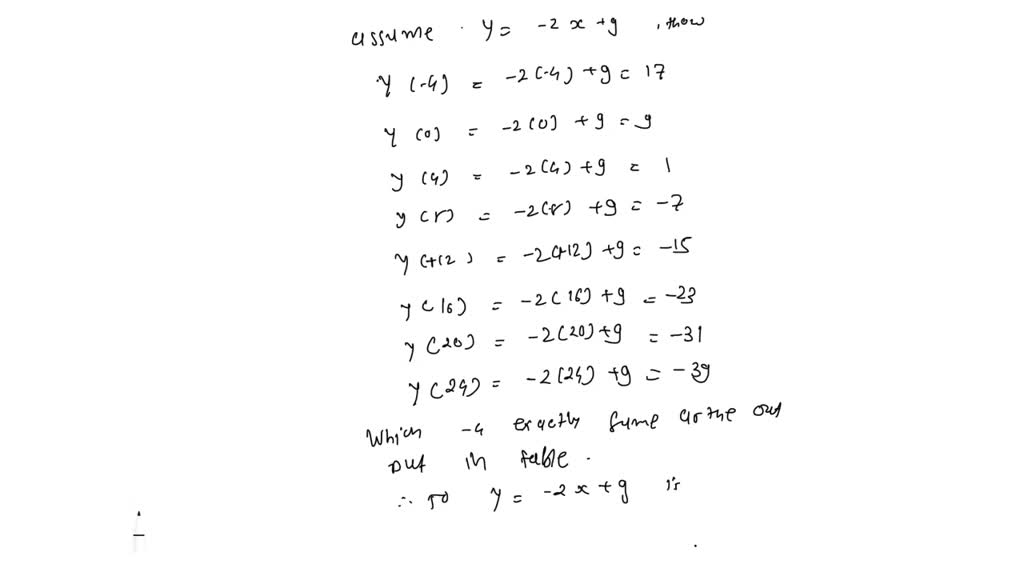 assume y = -2x+9, then
y(-4) = -2(-4)+9 = 17
y(0) = -2(0)+9 = 9
y(4) = -2(4)+9 = 1
y(8) = -2(8)+9 = -7
y(+12) = -2(+12)+9 = -15
y(16) = -2(16)+9 = -23
y(20) = -2(20)+9 = -31
y(24) = -2(24)+9 = -39
Which exactly same as the out
put in table.
∴ so y = -2x+9 is